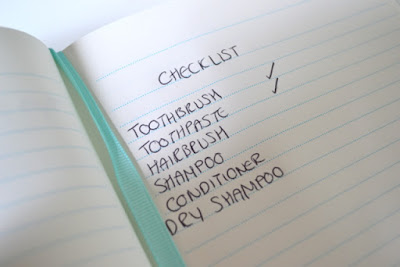 CHECKLIST
TOOTHBRUSH ✓
TOOTHPASTE ✓
HAIRBRUSH
SHAMPOO
CONDITIONER
DRY SHAMPOO